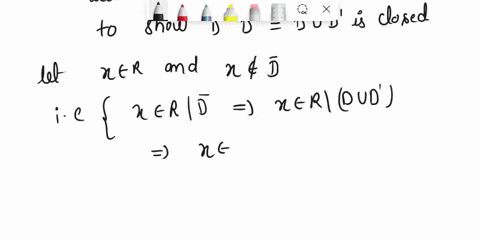 to show D̄ D = D∪D' is closed
let x∈R and x∉D̄
i.e { x∈R | D̄ => x∈R \ (D∪D')
=> x∈